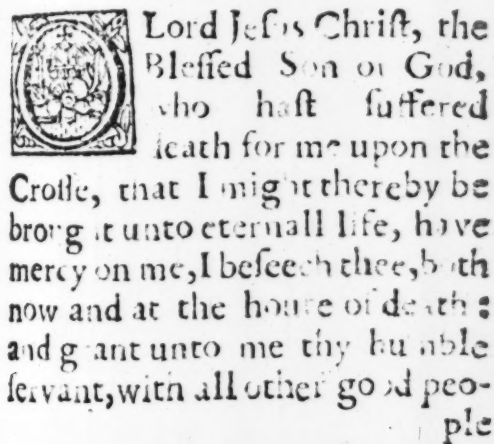 O Lord Jesus Chriſt, the
Bleſſed Son of God,
who haſt ſuffered
death for me upon the
Croſſe, that I might thereby be
brought unto eternall life, have
mercy on me, I beſeech thee, both
now and at the houre of death:
and grant unto me thy humble
ſervant, with all other good peo-
ple